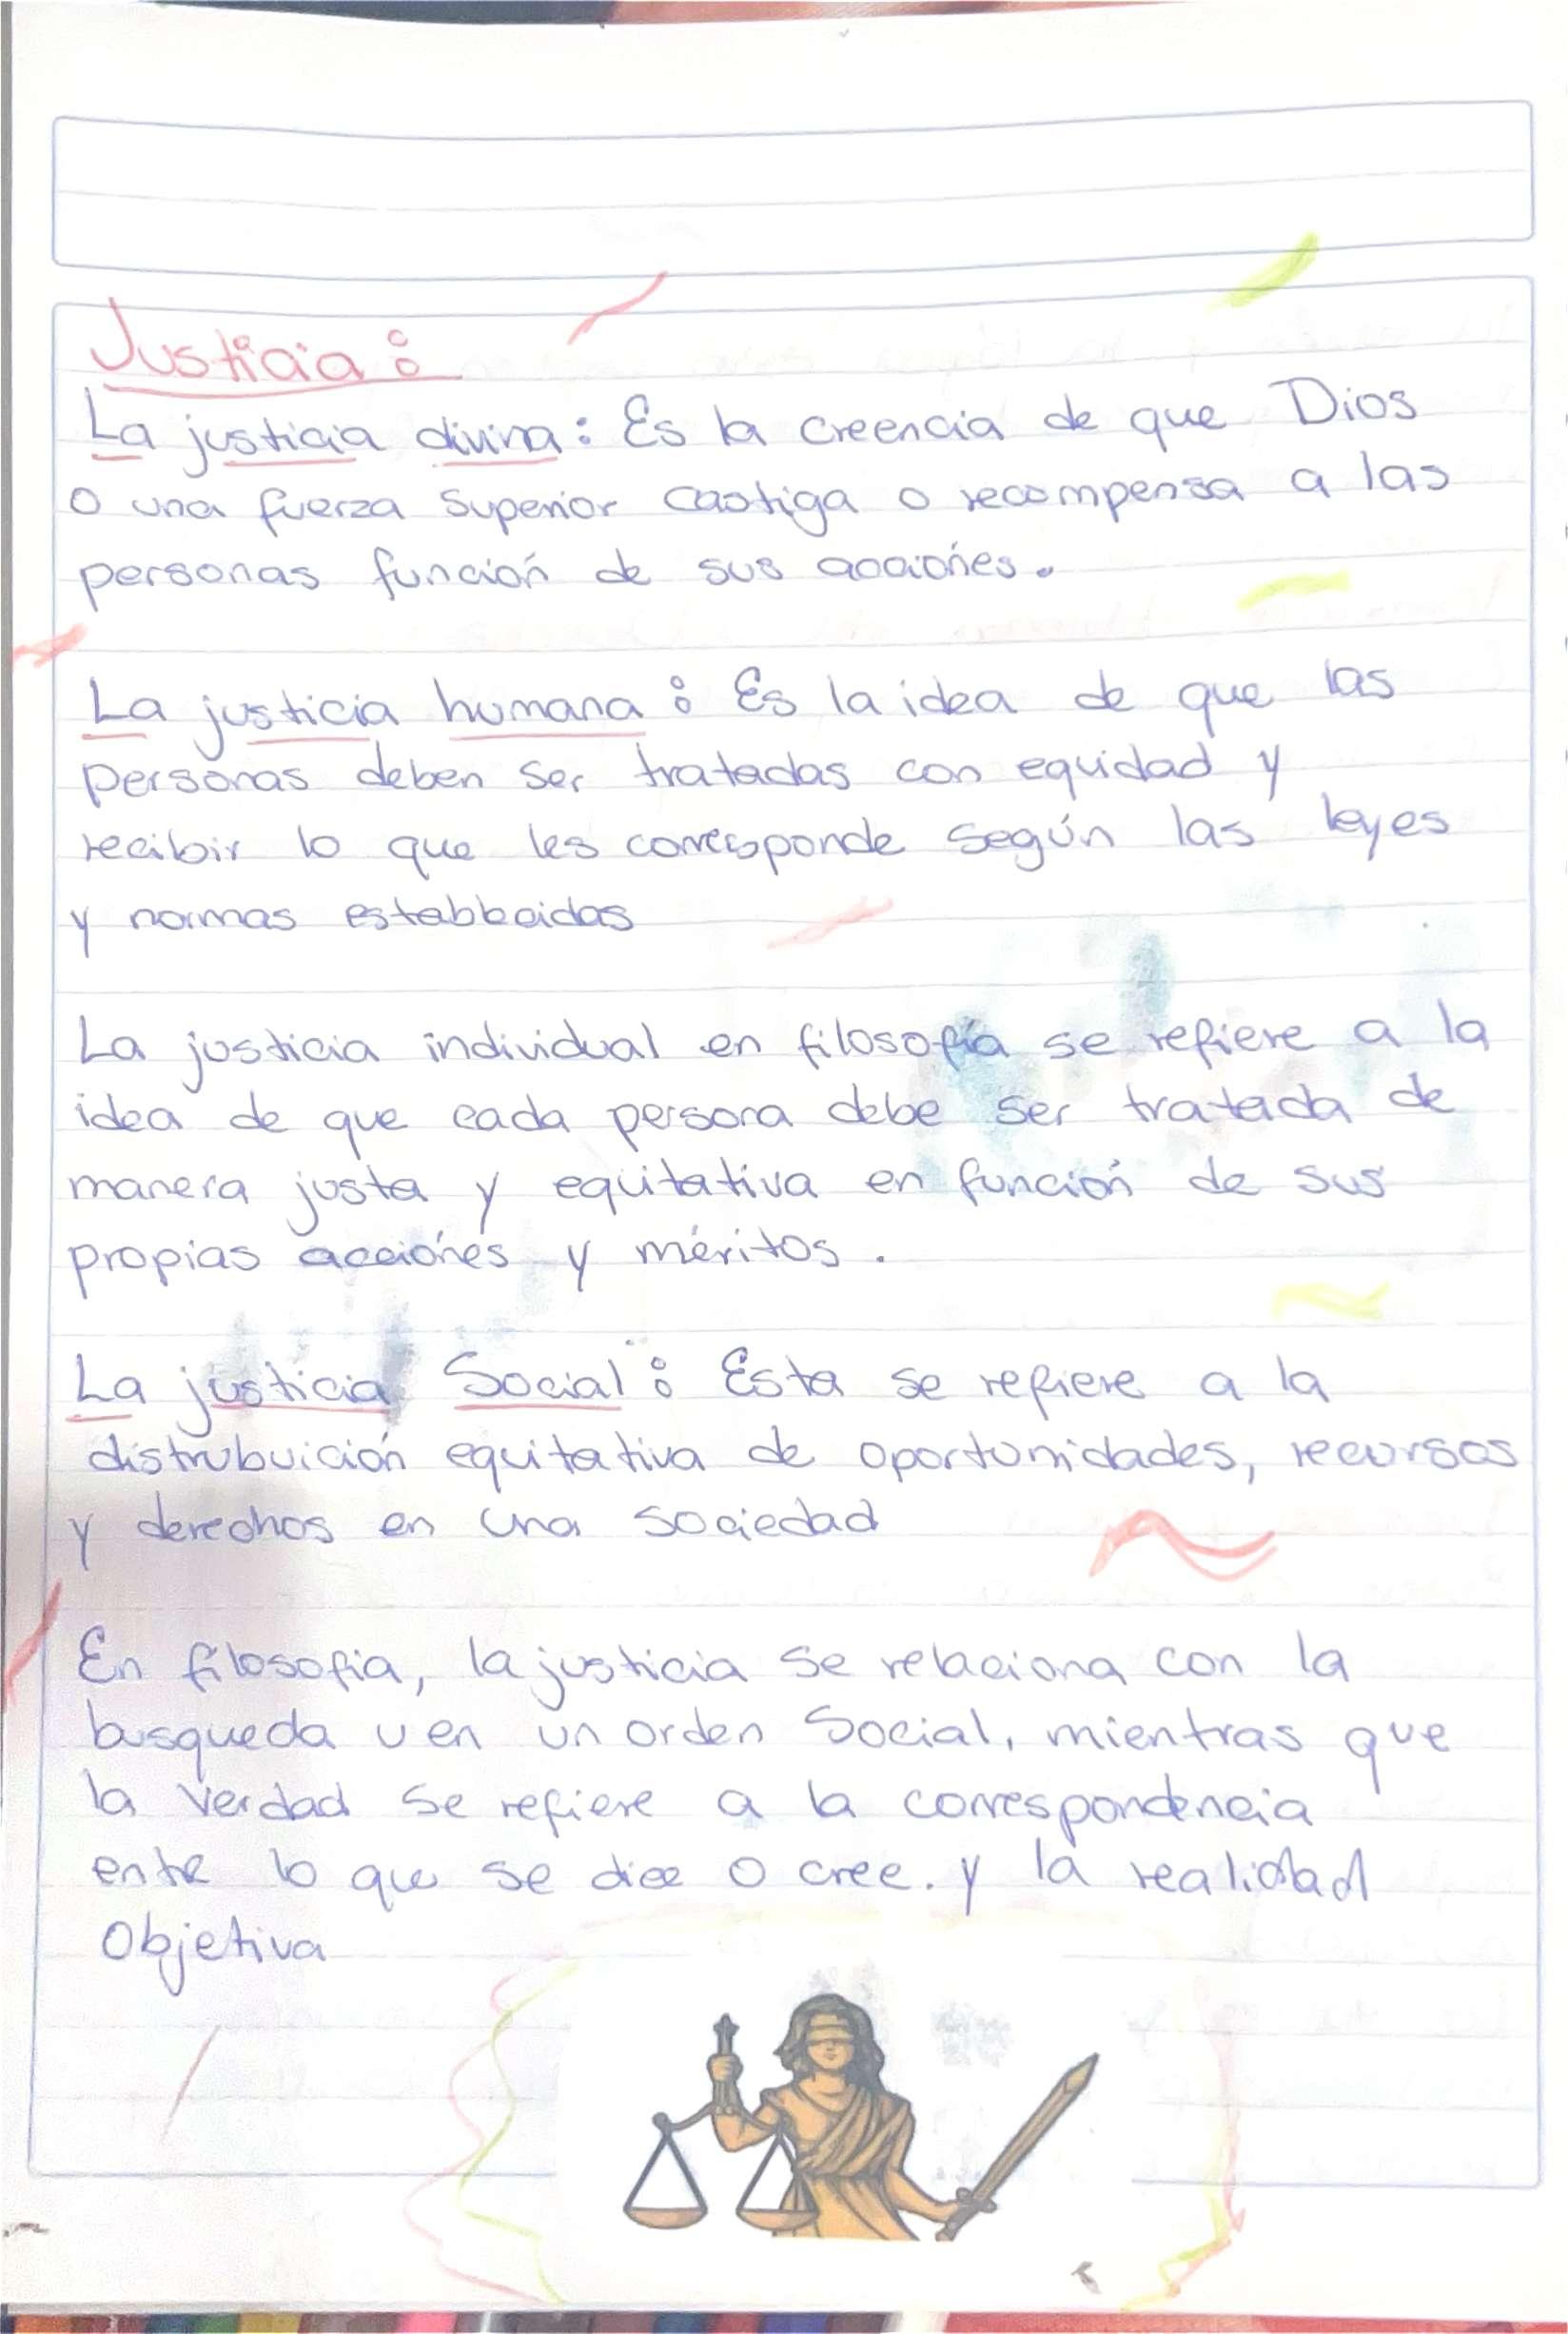 Justicia:
La justicia divina: Es la creencia de que Dios
o una fuerza Superior castiga o recompensa a las
personas función de sus acciones.
La justicia humana: Es la idea de que las
personas deben ser tratadas con equidad y
recibir lo que les corresponde según las leyes
y normas establecidas
La justicia individual en filosofía se refiere a la
idea de que cada persona debe ser tratada de
manera justa y equitativa en función de sus
propias acciones y méritos.
La justicia Social: Esta se refiere a la
distrubuición equitativa de oportunidades, recursos
y derechos en una sociedad
En filosofia, la justicia se relaciona con la
busqueda u en un orden Social, mientras que
la verdad se refiere a la correspondencia
entre lo que se dice o cree. y la realidad
Objetiva